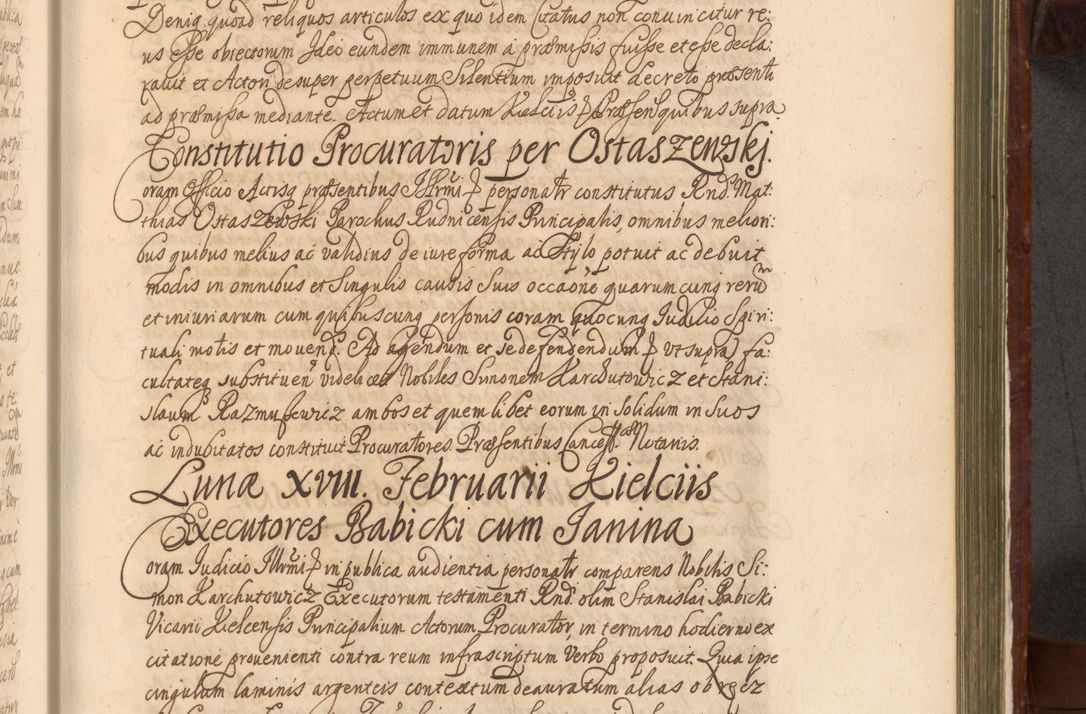 Deniq quoad reliquos articulos ex quo idem Citatus non convincitur re:
us esse obiectorum Ideo eundem immunem á præmissis fuisse et esse decla:
ravit et Actori desuper perpetuum Silentium imposuit decreto præsenti
ad præmissa mediante. Actum et datum Kielciis Præsen quibus supra
Constitutio Procuratoris per Ostaszewskj.
Coram Officio Actisq præsentibus Illrmi personalr constitutus Rnd. Mat:
thias Ostaszewski Parochus Rudnicensis Principalis, omnibus meliori:
bus quibus melius ac validius de iure forma ac Stylo potuit ac debuit
modis in omnibus et Singulis causis Suis occaone quarumcunq rerum
et iniuriarum cum quibuscunq personis coram quocunq Iudicio Spiri:
tuali motis et moven. Ad agendum et se defendendum ut supra fa:
cultateq substituen videlicet Nobiles Simonem Karchutowicz et Stani:
slaum Razmusewicz ambos et quemlibet eorum in Solidum in Suos
ac indubitatos constituit Procuratores. Præsentibus Cancell. Notariis.
Lunæ XVIII. Februarii Kielciis
Executores Babicki cum Janina
Coram Iudicio Illrmi in publica audientia personalr comparens Nobilis Si:
mon Karchutowicz Executorum testamenti Rnd. olim Stanislai Babicki
Vicarii Kielcensis Principalium Actorum Procurator, in termino hodierno ex
citatione provenienti contra reum infrascriptum Verbo proposuit. Quia ipse
cingulum laminis argenteis contextum deauratum alias obręcz